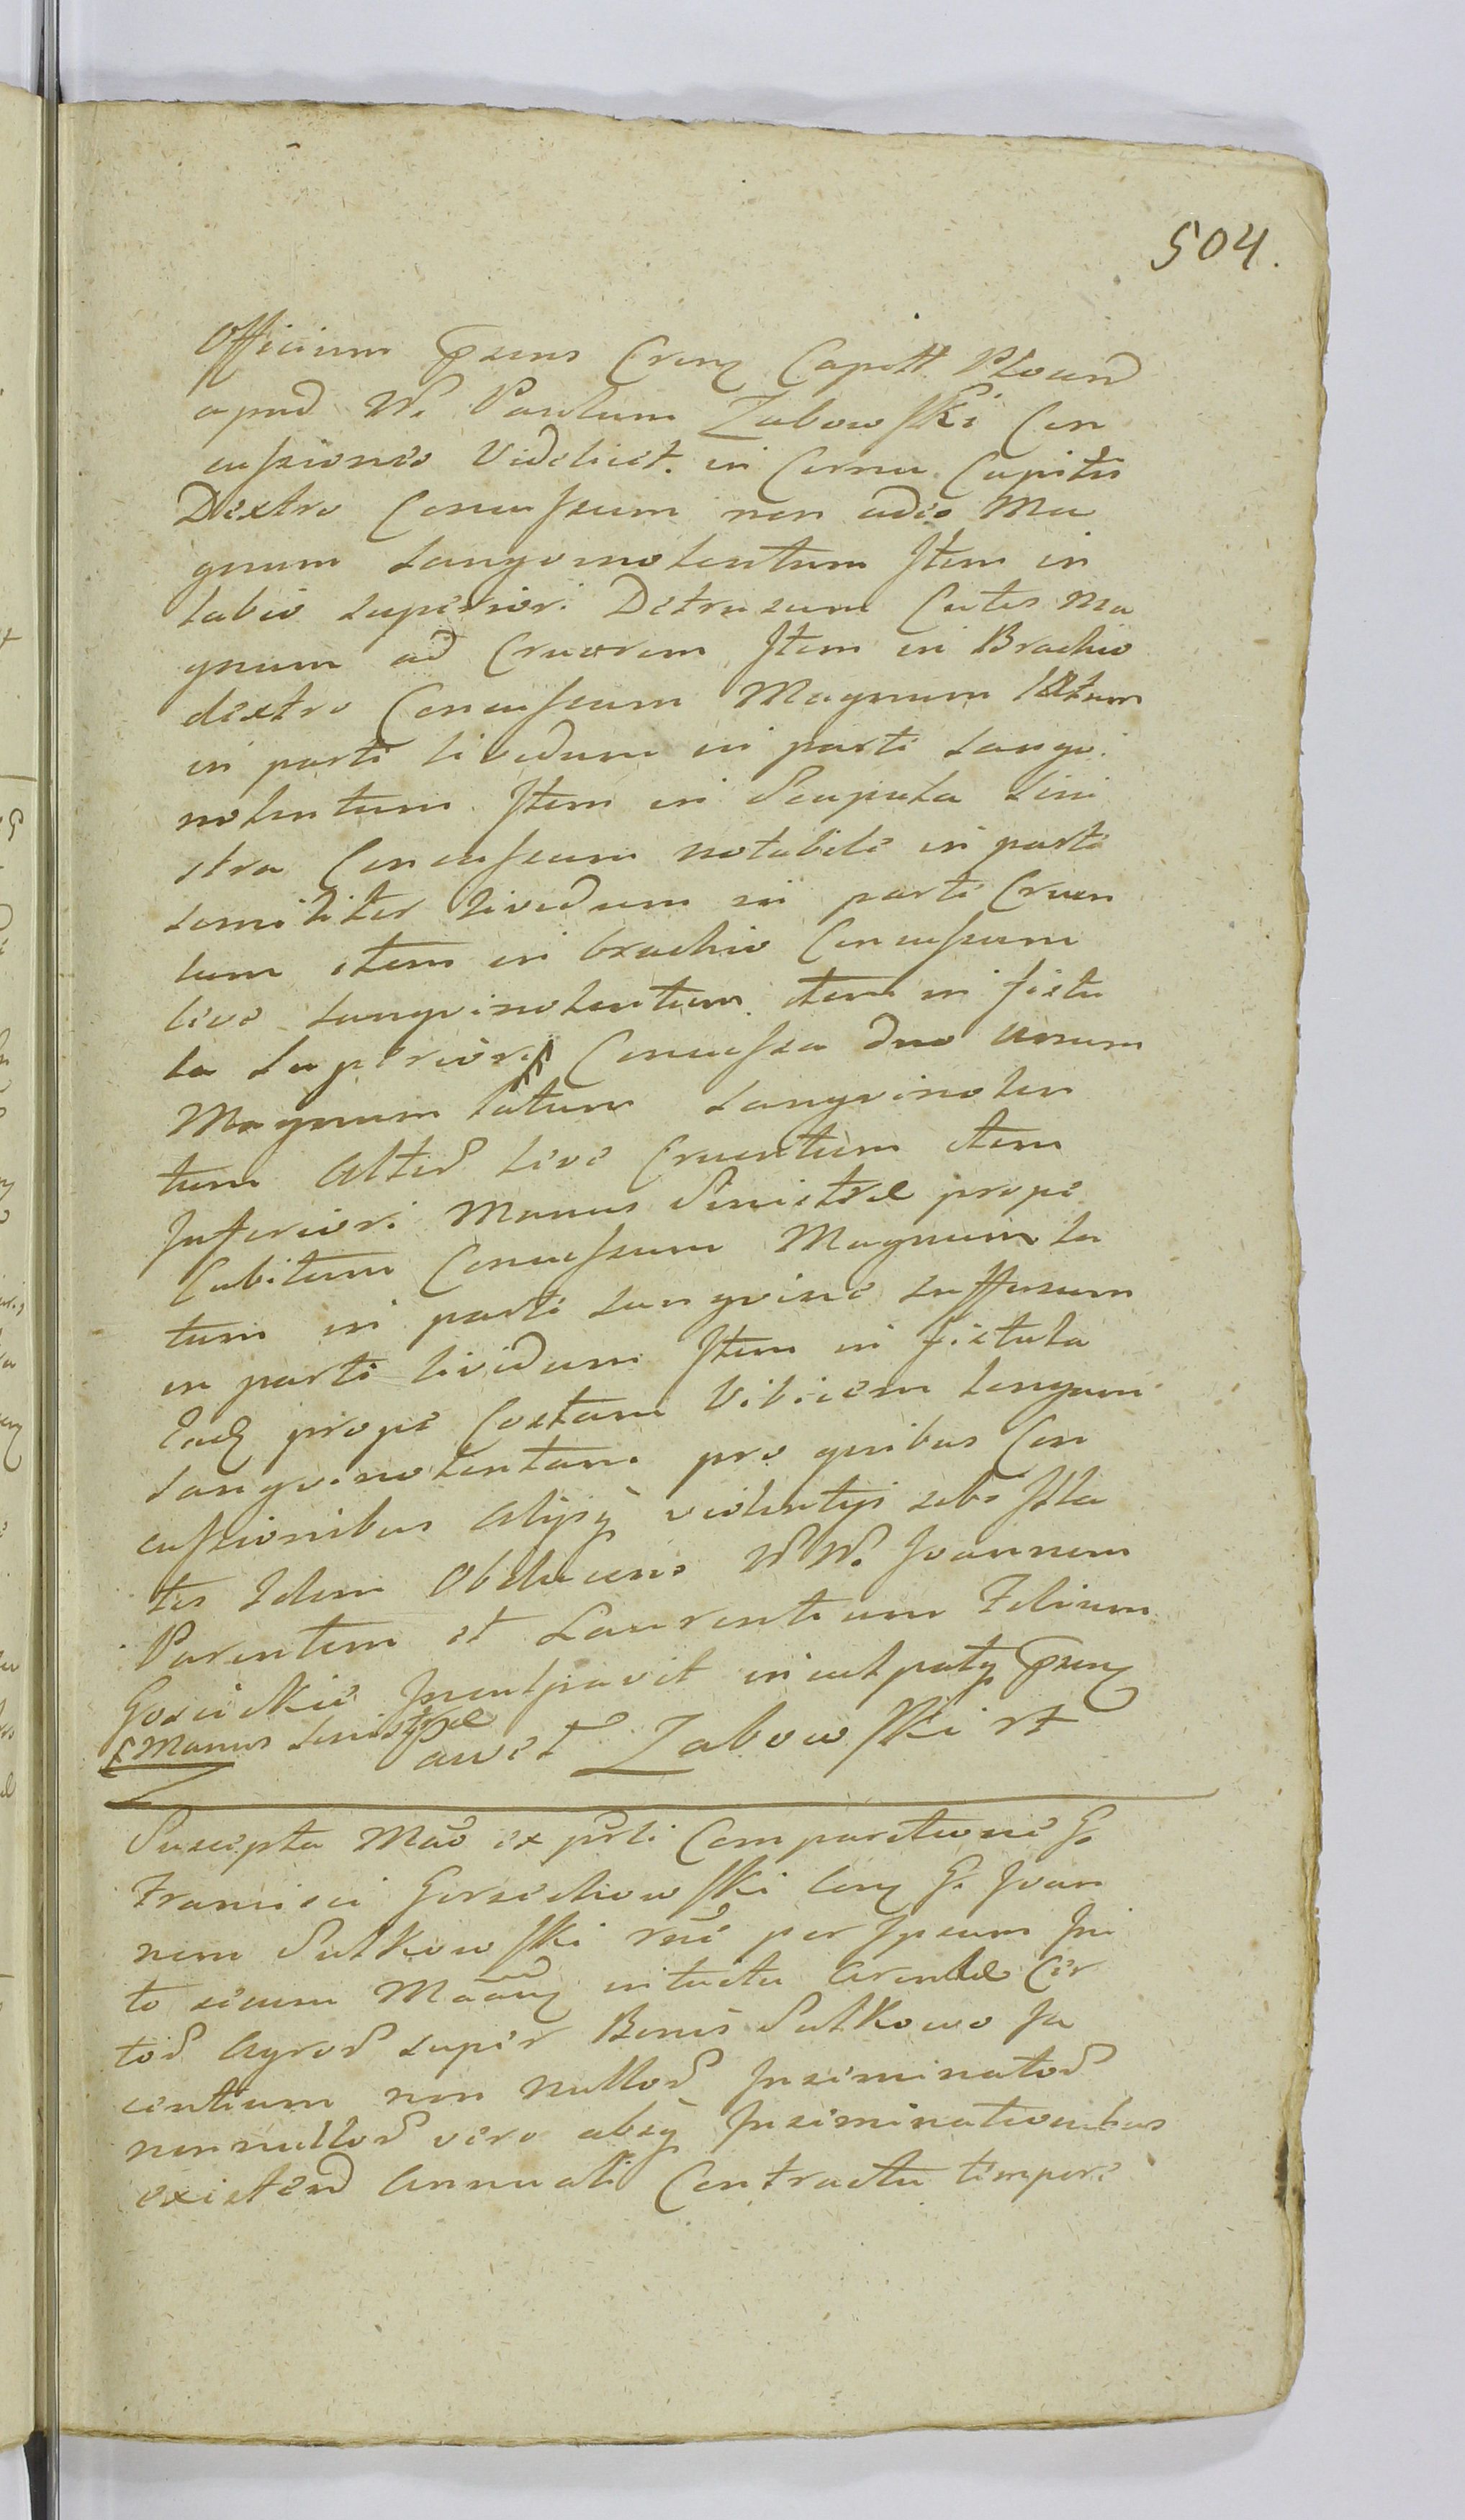 504.
Officium Pruns Crens Capitt Plocen
apud W. Paulum Zabowski Con
cussiones Videlicet. in Cornu Capitis
Dextro Concussum non adeo Ma
gnum Sangvinolentum Item in
labio superiori Detrusum Cutis Ma
gnum ad Cruorem Item in Brachio
dextro Concussum Magnum latum
in parte lividum in parte sangvi
nolentum. Item in Scapula Sini
stra Concussum notabile in parte
similiter lividum in parte Cruen
tum item in brachio Concussum
leve Sangvinolentum item in fistu
la Superiori Concussa duo unum
Magnum latum Sangvinolen
tum alterd leve Cruentum item
Inferiori Manus Sinistrae prope
Cubitum Concussum Magnum la
tum in parte Sangvine suffusum
in parte lividum Item in fistula
Eadz prope Costam Vibicem longam
Sangvinolentam pro quibus Con
cussionibus alijsq violentijs sibi Illa
tis Idem Obducens W W. Joannem
Parentem et Laurentium Filium
Gosickie Inculpavit inculpatq Prunz
x Manus Sinistrae
Paweł Zabowski rt
Suscepta Mão ex prli Comparitione G.
Francisci Gorzechowski conz G. Joan
nem Sulkowski rnê per Ipsum Jn
to sicum Mãoz intuitu arendae Cer
tod agrod super Bonis Sulkowo Ja
centium non nullod Inseminatod
nonnullod vero absq Inseminationibus
existend annuali Contractu tempore